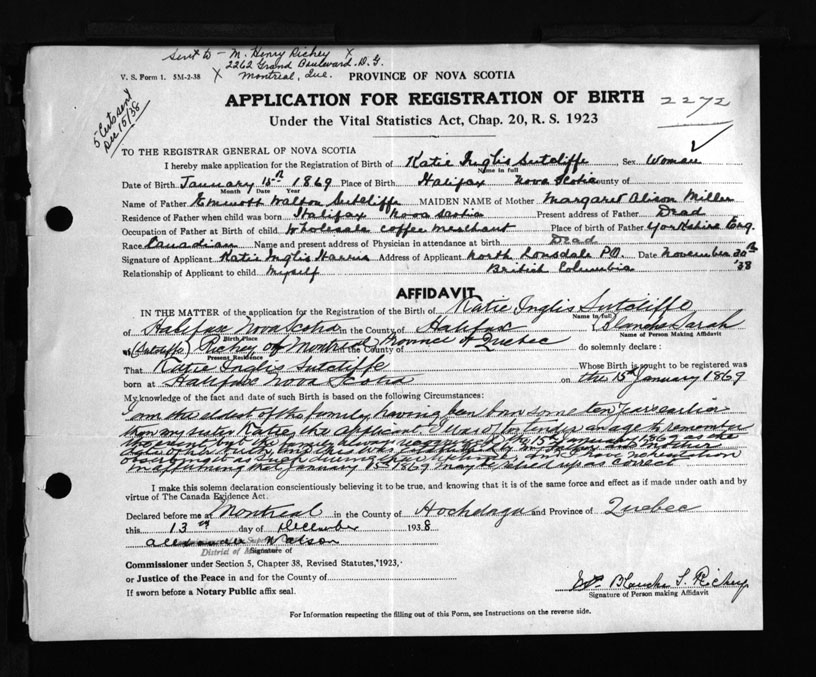 Sent to - M. Henry Richey X
2262 Grand Boulevard. D. G.
V. S. Form 1. 5M-2-38 X Montreal, Que. PROVINCE OF NOVA SCOTIA
APPLICATION FOR REGISTRATION OF BIRTH 2272
Under the Vital Statistics Act, Chap. 20, R. S. 1923
5 Certs sent
Dec 15/38
TO THE REGISTRAR GENERAL OF NOVA SCOTIA
I hereby make application for the Registration of Birth of Katie Inglis Sutcliffe Sex Woman
Name in full
Date of Birth January 15th 1869 Place of Birth Halifax Nova Scotia County of
Month / Date Year
Name of Father Emmott Walton Sutcliffe MAIDEN NAME of Mother Margaret Alison Miller
Residence of Father when child was born Halifax Nova Scotia Present address of Father Dead
Occupation of Father at Birth of child Wholesale coffee merchant Place of birth of Father Yorkshire Eng.
Race Canadian Name and present address of Physician in attendance at birth Dead
Signature of Applicant Katie Inglis Harris Address of Applicant North Lonsdale P.O. Date November 30th
Relationship of Applicant to child Myself British Columbia '38
AFFIDAVIT
IN THE MATTER of the application for the Registration of the Birth of Katie Inglis Sutcliffe
Name in full
of Halifax Nova Scotia in the County of Halifax (Blanche Sarah
Birth Place Name of Person Making Affidavit
(Sutcliffe) Richey of Montreal in the County of Province of Quebec do solemnly declare :
Present Residence
That Katie Inglis Sutcliffe Whose Birth is sought to be registered was
born at Halifax Nova Scotia on the 15th January 1869
My knowledge of the fact and date of such Birth is based on the following Circumstances:
I am the eldest of the family, having been born some ten years earlier
than my sister Katie, the applicant. I was of too tender an age to remember
the event, but the family always 15th January 1869 as the
date of her birth, and this was by my father and mother
during their lifetimes, and I have no hesitation
in affirming that January 15th 1869 may be relied upon as correct
I make this solemn declaration conscientiously believing it to be true, and knowing that it is of the same force and effect as if made under oath and by
virtue of The Canada Evidence Act.
Declared before me at Montreal in the County of Hochelaga and Province of Quebec
this 13th day of December 1938
Alexander Watson
District of Signature of
Commissioner under Section 5, Chapter 38, Revised Statutes, 1923,
or Justice of the Peace in and for the County of
If sworn before a Notary Public affix seal. Blanche S. Richey
Signature of Person making Affidavit
For Information respecting the filling out of this Form, see Instructions on the reverse side.